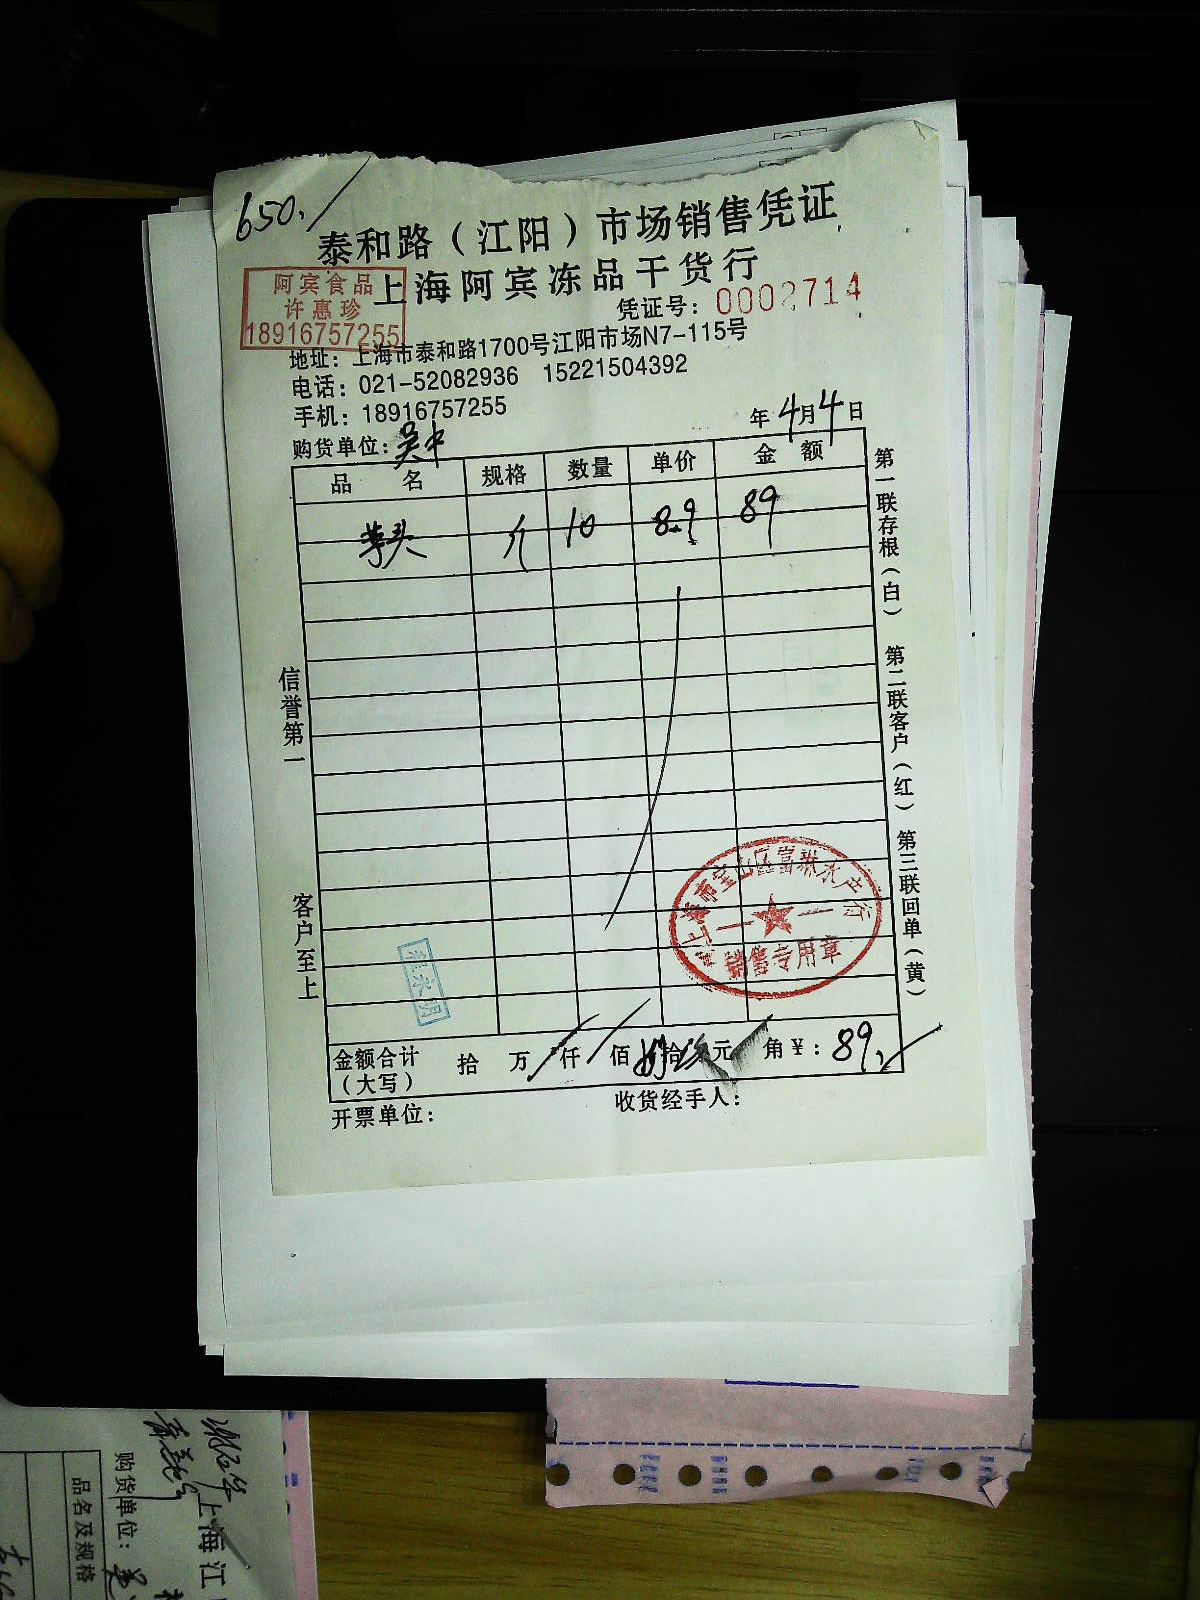 650.
泰和路（江阳）市场销售凭证
上海阿宾冻品干货行
阿宾食品
许惠珍
18916757255
凭证号：0002714
地址：上海市泰和路1700号江阳市场N7-115号
电话：021-52082936 15221504392
手机：18916757255
年4月4日
购货单位：吴中
品名 规格 数量 单价 金额
芋头 10 8.9 89
信誉第一
客户至上
第一联存根（白） 第二联客户（红） 第三联回单（黄）
销售专用章
金额合计（大写） 拾 万 仟 佰 拾 元 角 ¥：89.
开票单位：
收货经手人：
上海江
购货单位：
品名及规格